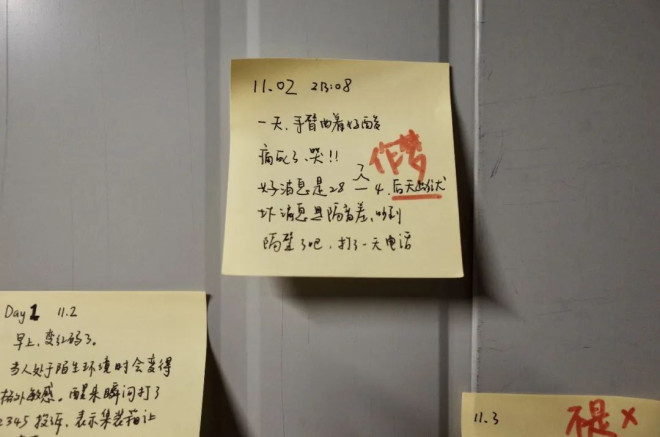 11.02 23:08
一天,手臂曲着好酸
痛死了,哭!!
作梦
好消息是28 人 4,后天出伏
坏消息是隔音差,听到
隔壁了吧,打了一天电话
Day 1 11.2
早上,变红码了。
当人处于陌生环境时会变得
格外敏感。醒来瞬间打了
2345投诉,表示集装箱让
11.3 不是 ×